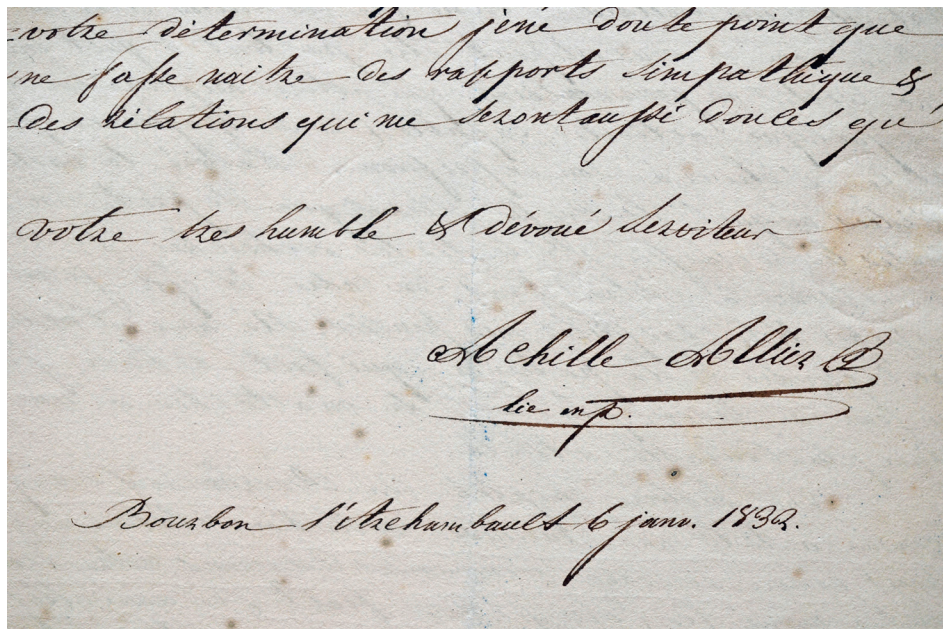 votre détermination je né doute point que
ne fasse naitre des rapports simpathique &
des rélations qui me seront aussi douces qu'
votre tres humble & dévoué serviteur
Achille Allier
Bourbon l'Archambault 6 janv. 1832.